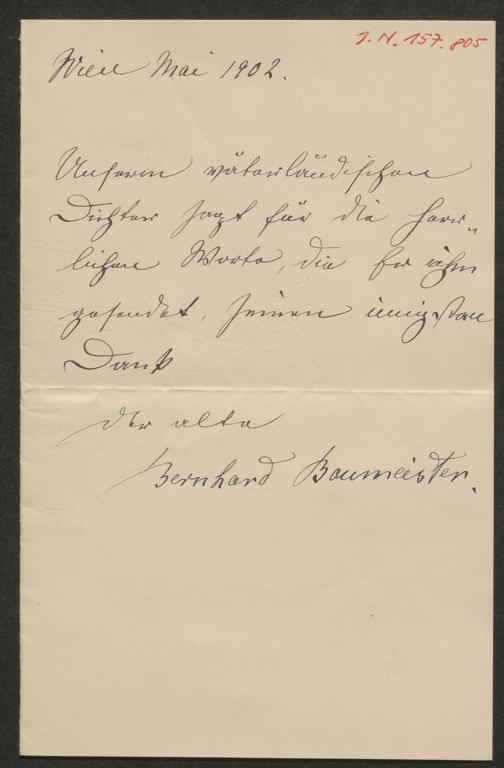 J.N. 157.805
Wien Mai 1902.
Unserem väterländischen
Dichter sagt für die herr„
lichen Worte, die Er ihm
gesendet, seinen innigsten
Dank
der alte
Bernhard Baumeister.